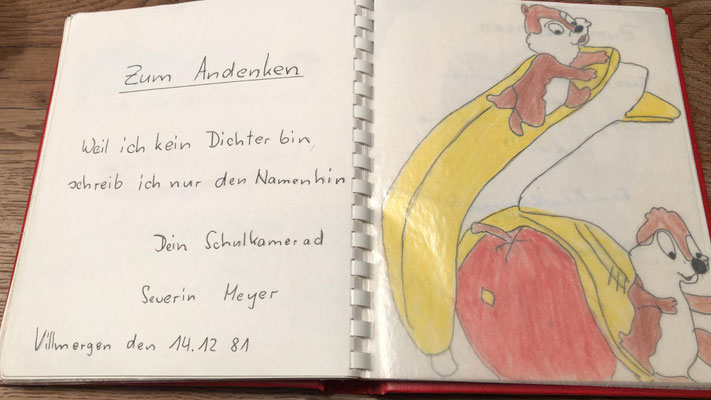 Zum Andenken
Weil ich kein Dichter bin,
schreib ich nur den Namen hin
Dein Schulkamerad
Severin Meyer
Villmergen den 14.12 81